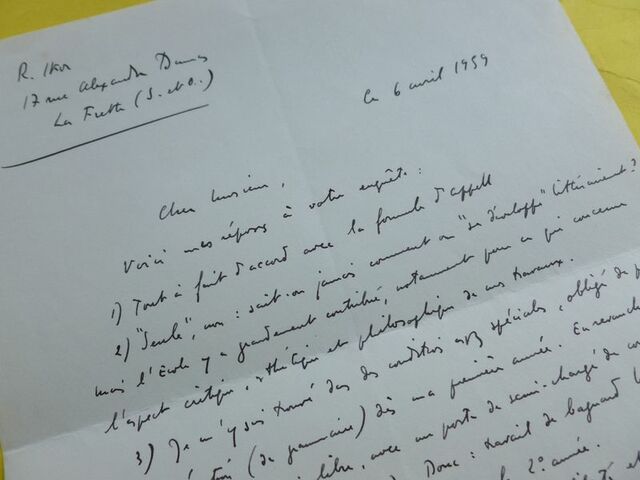 R. Ikor
17 rue Alexandre Dumas
La Frette (S. et O.)
le 6 avril 1959
Cher Monsieur,
Voici mes réponses à votre enquête :
1) Tout à fait d'accord avec la formule d'appel
2) "Seule", non : sait-on jamais comment on "se développe" littérairement ?
mais l'Ecole y a grandement contribué, notamment pour ce qui concerne
l'aspect critique, esthétique et philosophique de mes travaux.
3) Je m'y suis trouvé dans des conditions assez spéciales, obligé de
(de grammaire) dès ma première année. En revanche
libre, avec un poste de semi-chargé de
Donc : travail de bagnard
2° année.